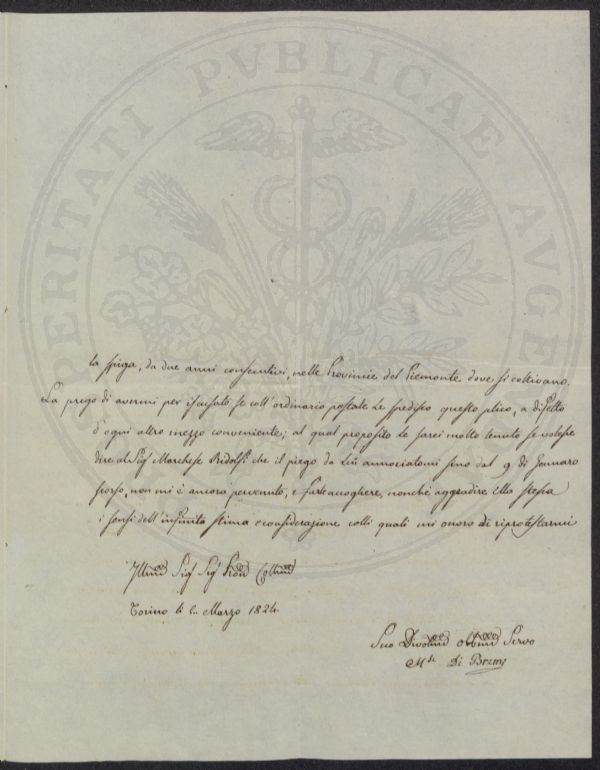 PROSPERITATI PVBLICAE AVGEN
la spiga, da due anni consecutivi, nelle Provincie del Piemonte dove si coltivano.
La prego di avermi per iscusato se coll'ordinario postale Le spedisco questo plico, a difetto
d'ogni altro mezzo conveniente; al qual proposito le sarei molto tenuto se volesse
dire al Sig Marchese Ridolfi che il piego da Lui annociatomi sino dal 9 di Gennaro
scorso, non mi è ancora pervenuto, e farle accogliere, nonchè aggradire Ella stessa
i sensi dell'infinita stima e considerazione colli quali mi onoro di riprotestarmi
Sig Sig
Torino li Marzo 1824.
Suo Servo
Di Breme